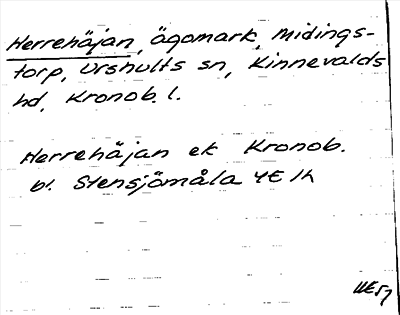 Herrehäjan, ägomark, Midings-
torp, Urshults sn, Kinnevalds
hd, Kronob. l.
Herrehäjan ek Kronob.
bl. Stensjömåla 4E 1h